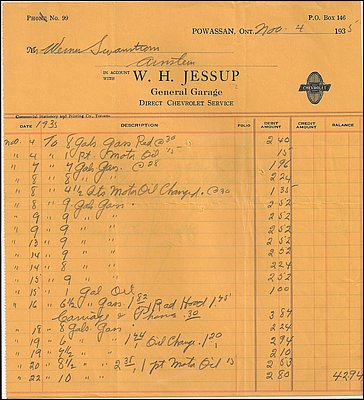 PHONE No. 99
P.O. BOX 146
POWASSAN, ONT. Nov. 4 1935
M Werner Swanstrom
Arnstein
IN ACCOUNT WITH
W. H. JESSUP
General Garage
DIRECT CHEVROLET SERVICE
CHEVROLET
Commercial Stationery and Printing Co., Toronto
DATE 1935 DESCRIPTION FOLIO DEBIT AMOUNT CREDIT AMOUNT BALANCE
Nov. 4 To 8 gals Gas Red @ 30 2 40
" 4 " 1 pt. Moto Oil 15 15
" 7 " 7 gals. Gas. @ 28 1 96
" 8 " 8 " " 2 24
" 8 " 4 1/2 qts Motor Oil Change @ 30 1 35
" 8 " 9 gals Gas 2 52
" 9 " 9 " " 2 52
" 9 " 9 " " 2 52
" 13 " 9 " " 2 52
" 14 " 9 " " 2 52
" 14 " 8 " " 2 24
" 15 " 9 " " 2 52
" 15 " 1 Gal Oil 1 00
" 16 " 6 1/2 " Gas. 1 82 1 Rad Hose 1 75
& Phone .30 3 87
" 18 " 8 gals Gas 2 24
" 19 " 6 " 1 44 Oil Change 1 20 2 94
" 19 " 7 1/2 " " 2 10
" 20 " 8 1/2 " 2 38, 1 pt Moto Oil 15 2 53
" 22 " 10 " " 2 80 42 94